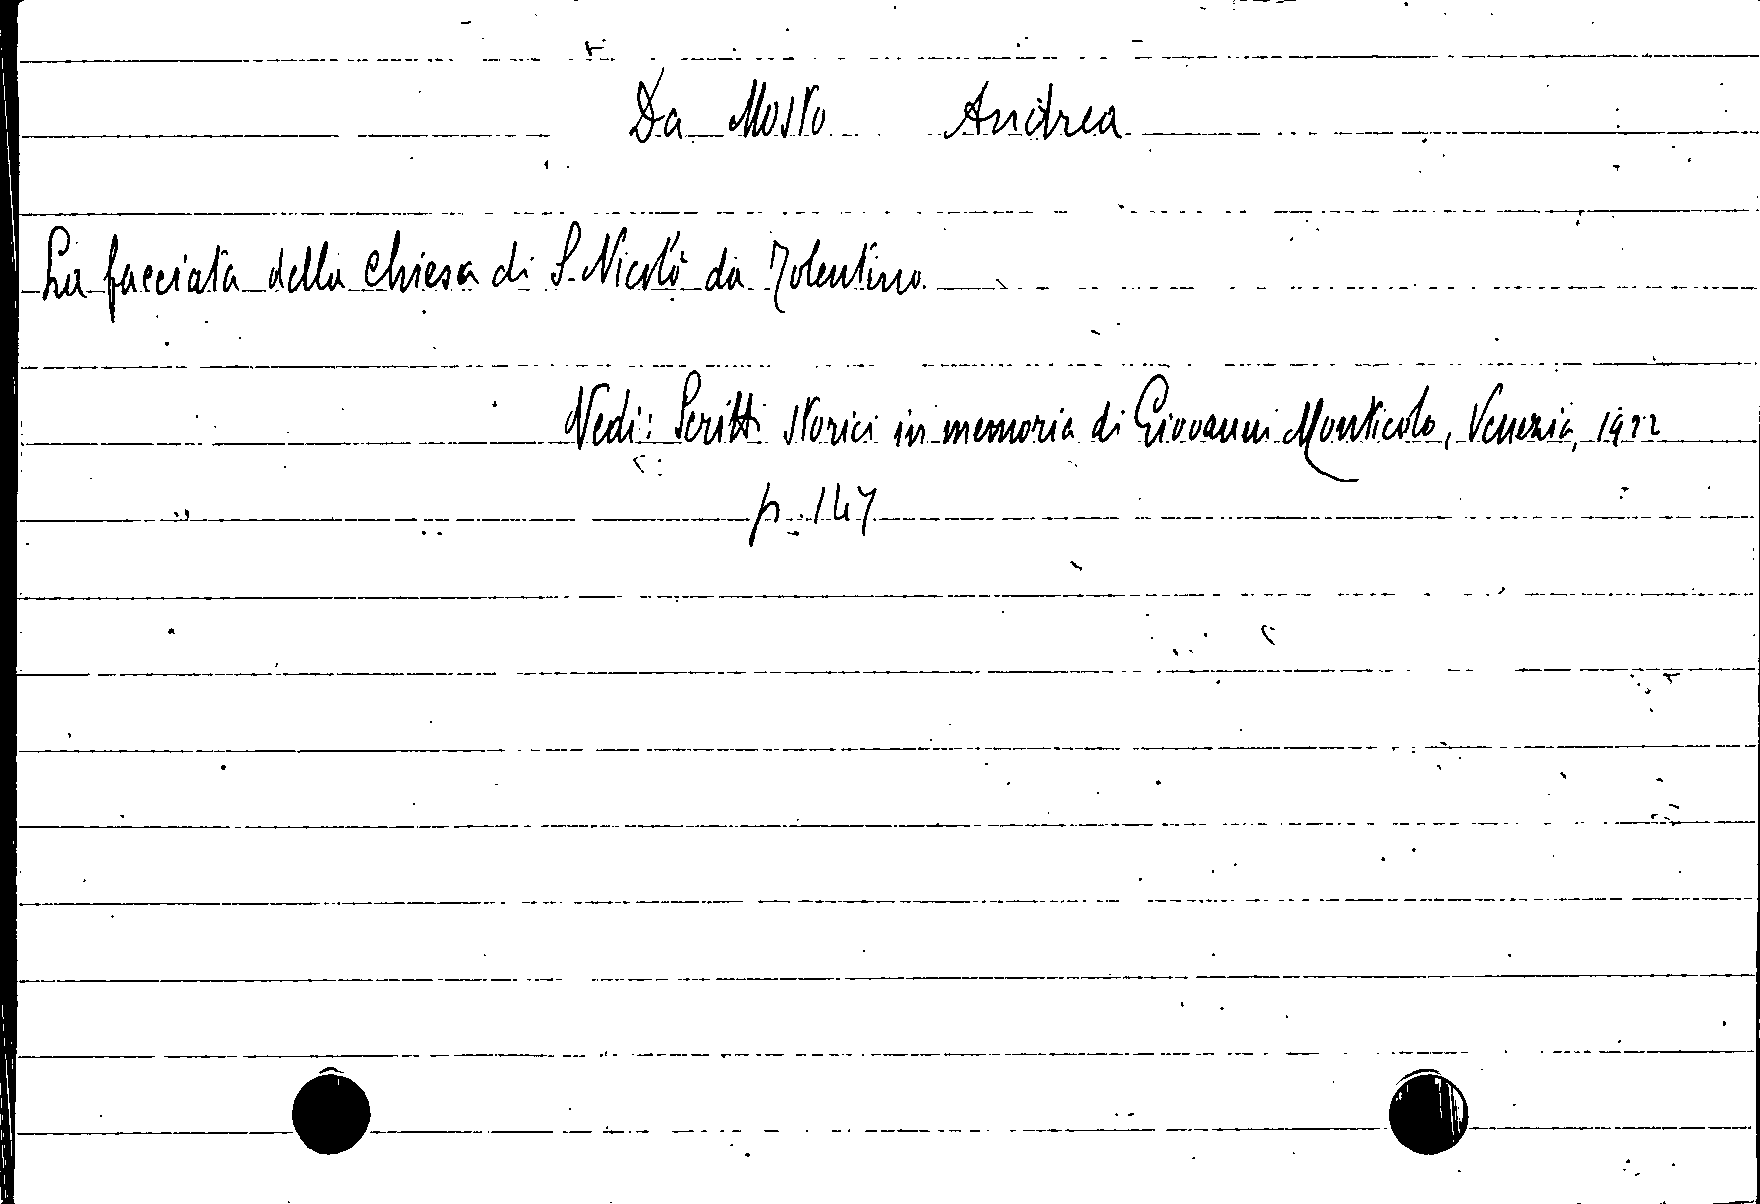 Da Mosto Andrea
La facciata della chiesa di S. Nicolò da Tolentino.
Vedi: Scritti storici in memoria di Giovanni Monticolo, Venezia, 1922
p. 147